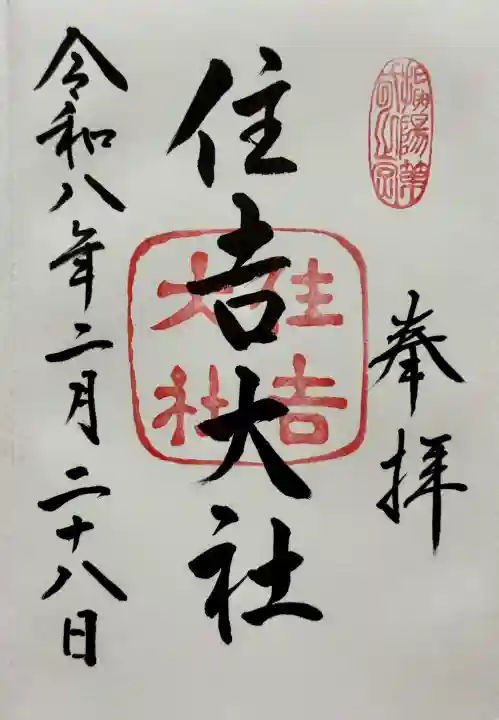 奉拝
住吉大社
住吉
大社
令和八年二月二十八日